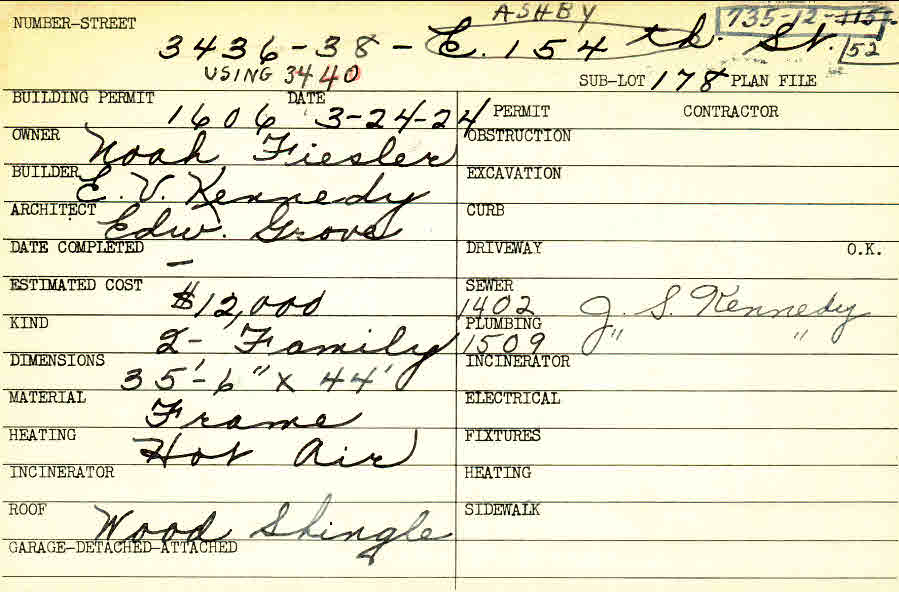 ASHBY 735-12-115
NUMBER-STREET
3436-38 - E. 154 th. St. 52
USING 3440
SUB-LOT 178 PLAN FILE
BUILDING PERMIT DATE PERMIT CONTRACTOR
1606 3-24-24
OWNER Noah Fiesler OBSTRUCTION
BUILDER E. V. Kennedy EXCAVATION
ARCHITECT Edw. Grove CURB
DATE COMPLETED - DRIVEWAY O.K.
ESTIMATED COST $12,000 SEWER 1402 J. S. Kennedy
KIND 2- Family PLUMBING 1509 " "
DIMENSIONS 35'-6" X 44' INCINERATOR
MATERIAL Frame ELECTRICAL
HEATING Hot Air FIXTURES
INCINERATOR HEATING
ROOF Wood Shingle SIDEWALK
GARAGE-DETACHED-ATTACHED